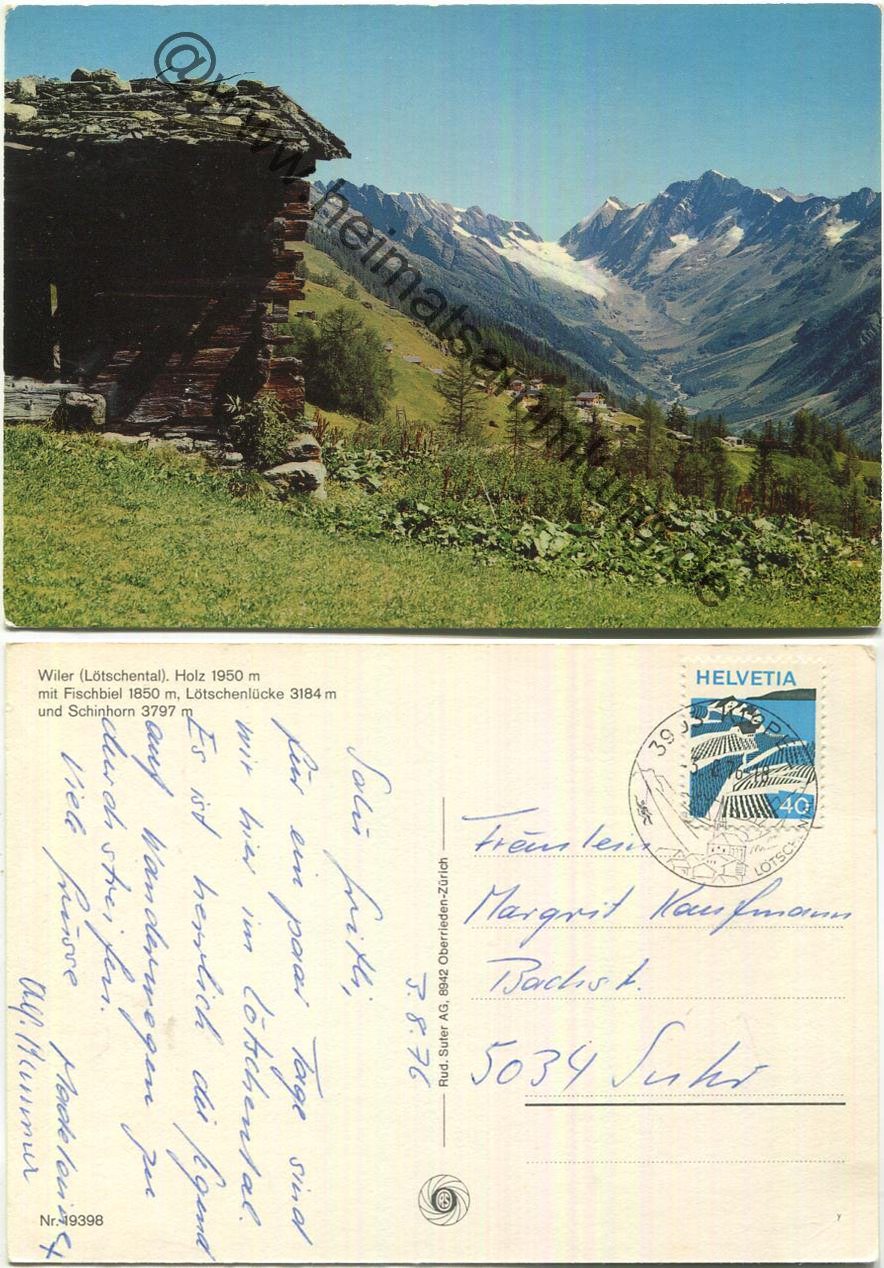 @www.heimatsammlung.de
Wiler (Lötschental). Holz 1950 m
mit Fischbiel 1850 m, Lötschenlücke 3184 m
und Schinhorn 3797 m
HELVETIA
40
LÖTSCHENTAL
3.8.76
Salü Gritli,
für ein paar Tage sind
wir hier im Lötschental.
Es ist herrlich die Gegend
auf Wanderwegen zu
durchstreifen.
Viele Grüsse
Madeleine +
Alf. Mummer
Rud. Suter AG, 8942 Oberrieden-Zürich
Fräulein
Margrit Kaufmann
Bachst.
5034 Suhr
RS
Nr. 19398
y